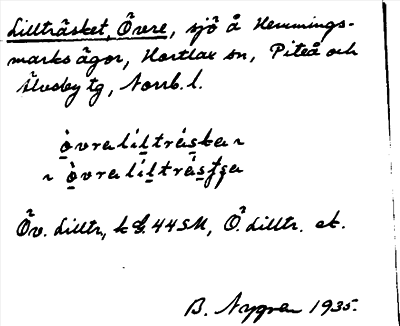 Lillträsket, Övre, sjö å Hemmings-
marks ägor, Hortlax sn, Piteå och
Älvsby tg, Norrb. l.
òvralíltráska ~
~ òvralíltrásʃga
Öv. Lilltr., k 44 SM, Ö. Lilltr. ek.
B. Nygren 1935.